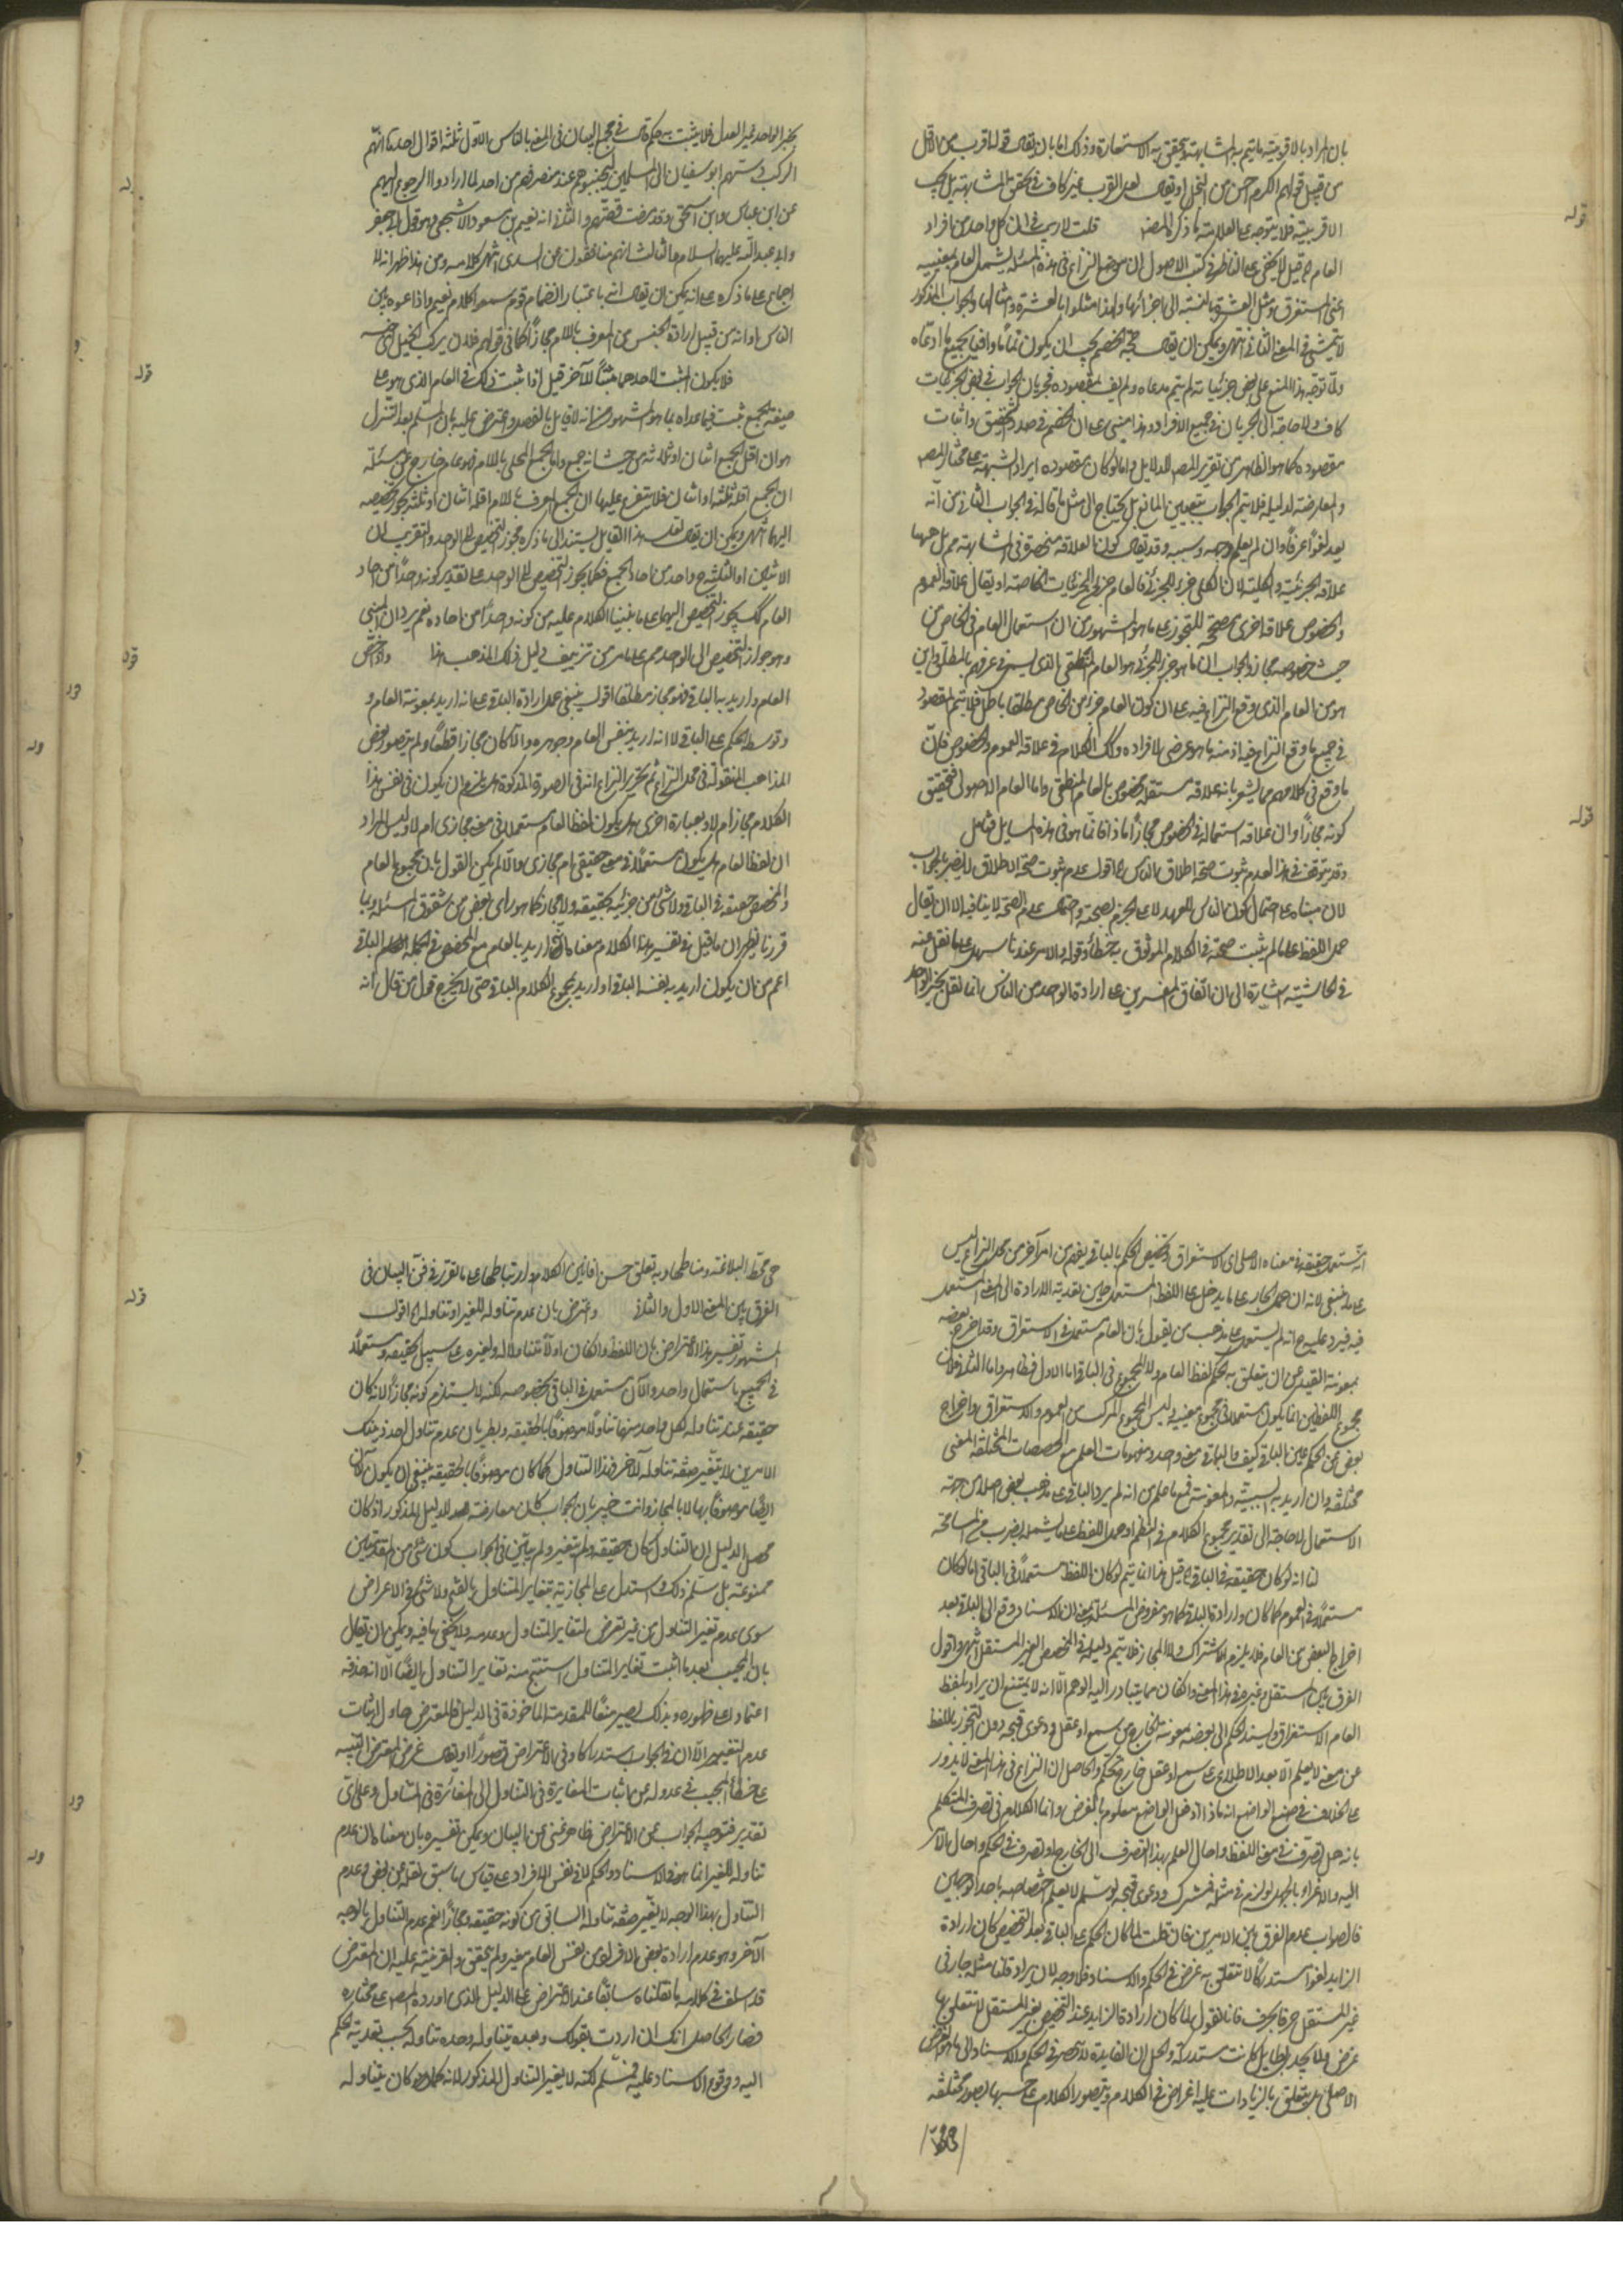 بان المراد بالاقربية ما يتم به المشابهة ويتحقق به الاستعارة وذلك اما بان يقال قولنا اقرب من الاقل
من قبيل قولهم الكرم احسن من البخل او يقال القرب غير كاف في تحقق المشابهة بل يجب
الاقربية فلا يتوجه على العلامة ما ذكره المصنف قلت لا ريب في ان كل واحد من افراد
العام قيل لا يخفى على الناظر في كتب الاصول ان موضع النزاع في هذه المسئلة يشمل العام بمعنييه
اعني المستغرق ومثل العشرة بالنسبة الى اجزائها ولهذا مثلوا بالعشرة وامثالها والجواب المذكور
لا يتمشى في المعنى الثاني انتهى ويمكن ان يقال حجة الخصم يجب ان يكون تماما وافيا بجميع ما ادعاه
ولما توجه هذا المنع على بعض جزئياته لم يتم مدعاه ولم يف بمقصوده فجريان الجواب في بعض الجزئيات
كاف ولا حاجة الى الجريان في جميع الافراد وهذا مبني على ان الخصم في صدد التحقيق واثبات
مقصوده كما هو الظاهر من تقرير المصنف للدلايل واما لو كان مقصوده ايراد الشبهة على مختار المصنف
والمعارضة لدليله فلا يتم الجواب بتعيين المانع بل يحتاج الى مثل ما قاله في الجواب الثاني من انه
يعد لغوا عرفا وان لم يعلم وجهه وسببه وقد يقال كون العلاقة منحصرة في المشابهة مم بل ههنا
علاقة الجزئية والكلية لان الكلي جزء للجزئي فالعام جزء للجزئيات الخاصة او يقال علاقة العموم
والخصوص علاقة اخرى مصححة للتجوز على ما هو المشهور من ان استعمال العام في الخاص من
حيث خصوصه مجاز والجواب ان ما هو جزء للجزئي هو العام المنطقي الذي ليس في عرفهم بالمطلق واين
هو من العام الذي وقع النزاع فيه على ان كون العام جزء من الخاص مطلقا باطل فلا يتم المقصود
في جميع ما وقع النزاع فيه اذ منه ما هو عرضي لافراده وكذا الكلام في علاقة العموم والخصوص فان
ما وقع في كلامهم مما يشعر بانه علاقة مستقلة مخصوص بالعام المنطقي واما العام الاصولي فتحقيق
كونه مجازا وان علاقة استعماله في الخصوص مجازا ماذا فانما هو في هذه المسايل فتأمل
وقد يتوقف في هذا لعدم ثبوت صحة اطلاق الناس الخ اقول عدم ثبوت صحة الاطلاق لا يضر بالجواب
لان مبناه على احتمال كون الناس للعهد لا على الجزم بصحته واحتمال عدم الصحة لا ينافيه الا ان يقال
حمل اللفظ على ما لم يثبت صحته في الكلام الموثوق به خطأ وقوله والامر عندنا سهل على ما نقل عنه
في الحاشية اشارة الى ان اتفاق المفسرين على ارادة الواحد من الناس انما نقل بخبر الواحد
بخبر الواحد غير العدل فلا يثبت به حكم قال في مجمع البيان في المعنى بالناس الاول ثلثة اقوال احدها انهم
الركب دستهم ابو سفيان الى المسلمين ليجبنوهم عند منصرفهم من احد لما ارادوا الرجوع اليهم
عن ابن عباس وابن اسحق وقد مضت قصتهم والثاني انه نعيم بن مسعود الاشجعي وهو قول ابي جعفر
وابي عبد الله عليهما السلام والثالث انهم منافقون عن السدي انتهى كلامه ومن هذا ظهر انه لا
اجماع على ما ذكره على انه يمكن ان يقال انه باعتبار انضمام قوم سمعوا كلام نعيم واذاعوه بين
الناس او انه من قبيل ارادة الجنس من المعرف باللام مجازا كما في قولهم فلان يركب الخيل
فلا يكون المثبت لاحدهما مثبتا للآخر قيل اذا ثبت ذلك في العام الذي هو على
صيغة الجمع ثبت فيما عداه بما هو المشهور من انه لا قايل بالفصل واعترض عليه بان المسلم بعد التنزل
هو ان اقل الجمع اثنان او ثلاثة من حيث انه جمع واما الجمع المحلى باللام فهو عام خارج عن مسئلة
ان الجمع اقله ثلثة او اثنان فلا يتفرع عليها ان الجمع المعرف باللام اقله اثنان او ثلثة يجوز تخصيصه
اليهما انتهى ويمكن ان يقال لعل هذا القايل يستند الى ما ذكره مجوز التخصيص الى الواحد والتقريب ان
الاثنين او الثلثة واحد من احاد الجمع فكما يجوز التخصيص الى الواحد على تقدير كونه واحدا من احاد
العام كك يجوز التخصيص اليهما على ما بنينا الكلام عليه من كونه واحدا من احاده نعم يرد ان المبني
وهو جواز التخصيص الى الواحد مم على ما مر من تزييف دليل ذلك المذهب هذا واذا خص
العام واريد به الباقي فهو مجاز مطلقا اقول ينبغي حمل ارادة الباقي على انه اريد بمعونة العام و
وتوسط الحكم على الباقي لا انه اريد بنفس العام وجوهره والا كان مجازا قطعا ولم يتصور بعض
المذاهب المنقولة في محل النزاع ثم تحرير النزاع انه في الصورة المذكورة هل يلزم ان يكون في نفس هذا
الكلام مجاز ام لا وبعبارة اخرى هل يكون لفظ العام مستعملا في معنى مجازي ام لا وليس المراد
ان لفظ العام هل يكون مستعملا في معنى حقيقي ام مجازي والا لم يكن القول بان مجموع العام
والمخصص حقيقة في الباقي ولا شئ من جزئيه بحقيقة ولا مجاز كما هو رأي بعض من شقوق المسئلة وبما
قررنا يظهر ان ما قيل في تفسير هذا الكلام معناه اريد بالعام مع المخصص في الجملة الباقي
اعم من ان يكون اريد بلفظ الباقي او اريد بمجموع الكلام الباقي حتى لا يخرج قول من قال انه
انه مستعمل حقيقة في معناه الاصلي اي الاستغراق وتخصيص الحكم بالباقي يفهم من امر آخر من محل النزاع ليس
على ما ينبغي لانه ان حمل الجار على ما يدخل على اللفظ المستعمل حين تعدية الارادة الى المعنى المستعمل
فيه فيرد عليه انه لم يستعمل على مذهب من يقول بان العام مستعمل في الاستغراق وقد اخرج بعضه
بمعونة القيد عن ان يتعلق به الحكم لفظ العام ولا المجموع في الباقي اما الاول فظاهر واما الثاني فلان
مجموع اللفظين انما يكون مستعملا في مجموع معنييه وليس المجموع المركب من العموم والاستغراق واخراج
بعض عن الحكم عين الباقي كيف والباقي معنى واحد ومفهومات العام مع المخصصات المختلفة المعنى
مختلفة وان اريد به السببية والمعونة رفع ما علم من انه لم يرد الباقي على مذهب بعض اصلا من جهة
الاستعمال لا حاجة الى تقدير مجموع الكلام في النظم او حمل اللفظ على ما يشمله بضرب من المسامحة
لنا انه لو كان حقيقة في الباقي الخ قيل هذا انما يتم لو كان اللفظ مستعملا في الباقي اما لو كان
مستعملا في العموم كما كان وارادة الباقي كما هو مفروض المسئلة بمعنى ان الاسناد وقع الى الباقي بعد
اخراج البعض عن العام فلا يلزم الاشتراك ولا المجاز فلا يتم دليله في المخصص الغير المستقل انتهى واقول
الفرق بين المستقل وغيره في هذا المعنى وان كان مما يتبادر اليه الوهم الا انه لا يمتنع ان يراد بلفظ
العام الاستغراق ويسند الحكم الى بعضه بمعونة الخارج من سمع او عقل ودعوى قبحه دون التجوز باللفظ
عن معنى لا يعلم الا بعد الاطلاع على سمع او عقل خارج تحكم والحاصل ان النزاع في هذا المعنى لا يدور
على الخلاف في وضع الواضع انه ماذا اذ فعل الواضع معلوم بالفرض وانما الكلام في تصرف المتكلم
بانه هل تصرف في معنى اللفظ واحال العلم بهذا التصرف الى الخارج او تصرف في الحكم واحال بالآخر
اليه والاغراء بالجهل لو لزم في مثله فمشترك ودعوى قبحه لو سلم لا يعلم اختصاصه باحد الوجهين
فالصواب عدم الفرق بين الامرين فان قلت لما كان الحكم على الباقي بعد التخصيص كان ارادة
الزايد لغوا مستدركا لا يتعلق به غرض في الحكم والاسناد فلا وجه لان يراد قلنا مثله جار في
غير المستقل حرفا بحرف فانا نقول لما كان ارادة الزايد عند التخصيص بغير المستقل لا يتعلق بها
غرض ولا يجدي بطايل كانت مستدركة والحل ان الفايدة لا تنحصر في الحكم والاسناد الى ما هو الغرض
الاصلي بل يتعلق بالزيادات عليه اغراض في الكلام ويتصور الكلام على حسبها بصور مختلفة
هي محط البلاغة ومناطها وبه تعلق حسن افانين الكلام وارتباطها على ما تقرر في فن البيان في
الفرق بين المعنى الاول والثاني واعترض بان عدم تناوله للغير او تناوله الخ اقول
المشهور تفسير هذا الاعتراض بان اللفظ وان كان اولا متناولا له ولغيره على سبيل الحقيقة ومستعملا
في الجميع باستعمال واحد والآن مستعمل في الباقي بخصوصه لكنه لا يستلزم كونه مجازا لانه كان
حقيقة عند تناوله لكل واحد منها تناولا موصوفا بالحقيقة وبطريان عدم تناول احد ذينك
الامرين لا يتغير صفة تناوله للآخر فهذا التناول كما كان موصوفا بالحقيقة ينبغي ان يكون الآن
ايضا موصوفا بها لا بالمجاز وانت خبير بان الجواب كان معارضة لدليل المذكور اذ كان
محصل الدليل ان التناول كان حقيقة ولم يتغير ولم يتبين في الجواب كون شئ من المقدمتين
ممنوعة بل سلم ذلك واستدل على المجازية بتغاير المتناول بالفتح ولا شئ في الاعتراض
سوى عدم تغير التناول من غير تعرض لتغاير المتناول وعدمه ولا يخفى ما فيه ويمكن ان يقال
بان المجيب بعد ما اثبت تغاير المتناول استنتج منه تغاير التناول ايضا الا انه حذفه
اعتمادا على ظهوره وبذلك يصير منعا للمقدمة الماخوذة في الدليل فالمعترض حاول اثبات
عدم التغيير الا ان في الجواب استدراكا وفي الاعتراض قصورا او يقال غرض المعترض التنبيه
على خطأ المجيب في عدوله عن اثبات المغايرة في التناول الى المغايرة في المتناول وعلى اي
تقدير فتوجيه الجواب عن الاعتراض ظاهر غني عن البيان ويمكن تفسيره بان معناه ان عدم
تناوله للغير انما هو في الاسناد والحكم لا في نفس الافراد على قياس ما سبق نقله عن بعض وعدم
التناول بهذا الوجه لا يغير صفة تناوله السابق من كونه حقيقة ومجازا نعم عدم التناول بالوجه
الآخر وهو عدم ارادة بعض الافراد من نفس العام مغير ولم يتحقق والقرينة عليه ان المعترض
قد سلف في كلامه ما نقلناه سابقا عند الاعتراض على الدليل الذي اورده المصنف على مختاره
فصار الحاصل انك ان اردت بقولك وبعده يتناوله وحده تناوله بحسب تعدية الحكم
اليه ووقوع الاسناد عليه فمسلم لكنه لا يغير التناول المذكور لانه كما كان يتناوله
قوله
قوله
قوله
قوله